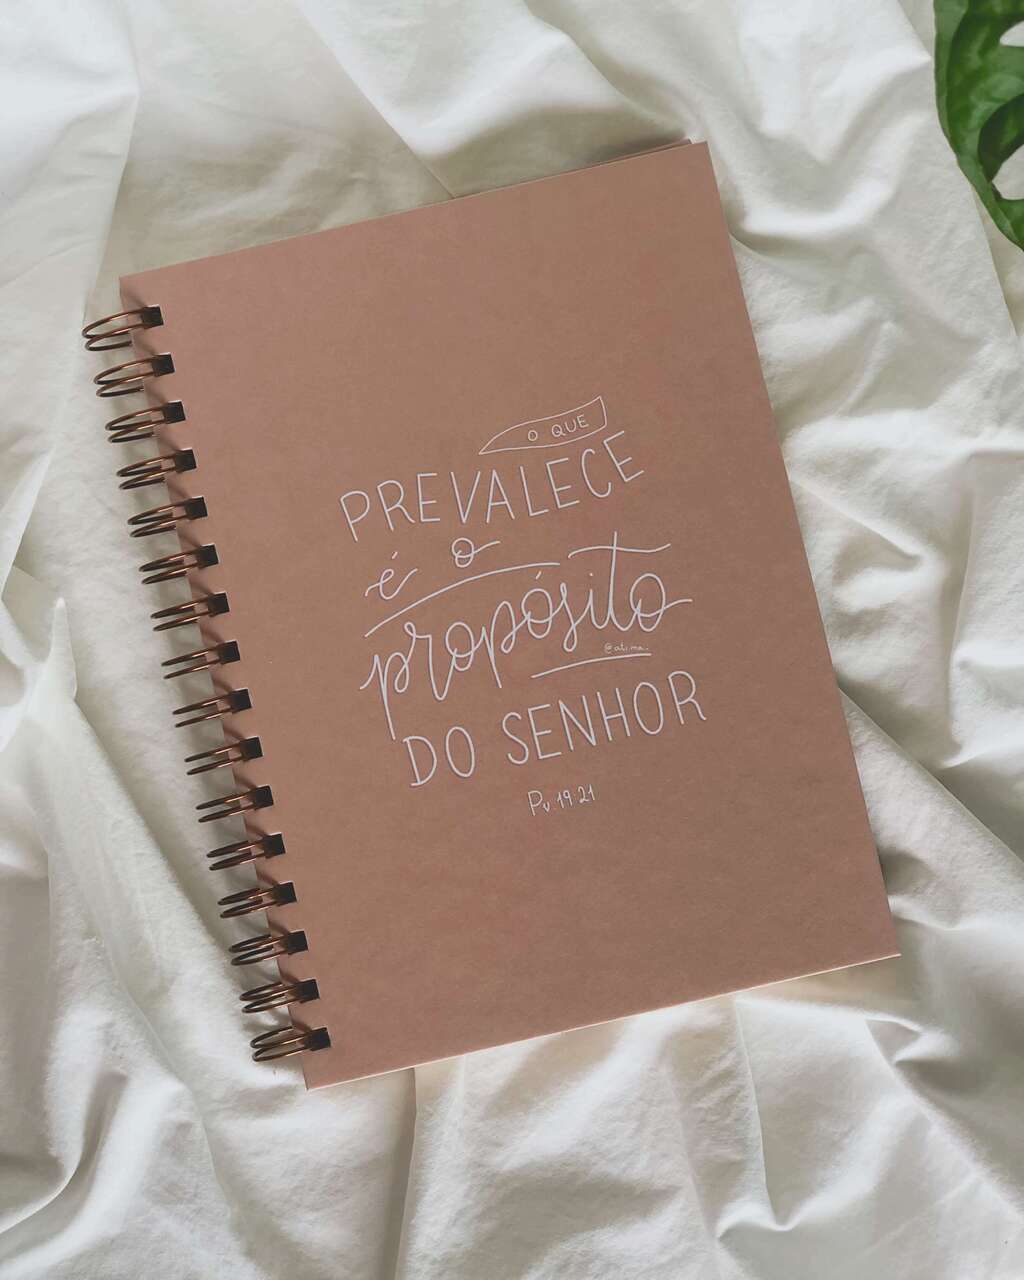 O QUE
PREVALECE
é o
propósito
@ati.ma.
DO SENHOR
Pv. 19:21